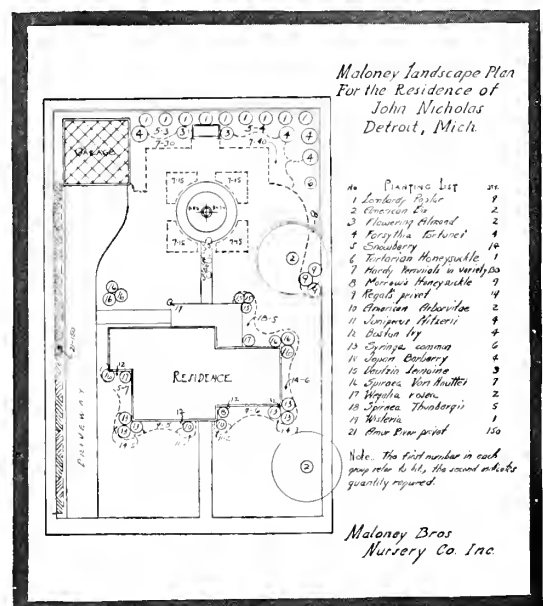 Maloney Landscape Plan
For the Residence of
John Nicholas
Detroit, Mich.
No PLANTING LIST
1 Lombardy Poplar 9
2 American Elm 2
3 Flowering Almond 2
4 Forsythia Fortunei 4
5 Snowberry 14
6 Tartarian Honeysuckle 1
7 Hardy Perennials in variety
8 Morrows Honeysuckle 9
9 Regals privet
10 American Arborvitae 2
11 Juniperus Pfitzerii 4
12 Boston Ivy 4
13 Syringa common 6
14 Japan Barberry 4
15 Deutzia Lemoine 3
16 Spiraea Van Houttei 7
17 Weigelia rosea 2
18 Spiraea Thunbergii 5
19 Wisteria 1
21 Amur River privet 150
Note.. The first number in each
group refer to list, the second indicates
quantity required.
Maloney Bros
Nursery Co. Inc.
GARAGE
5-3
5-4
7-30
7-40
7-15
7-15
7-15
7-15
RESIDENCE
DRIVEWAY
21-150
18-5
14-6